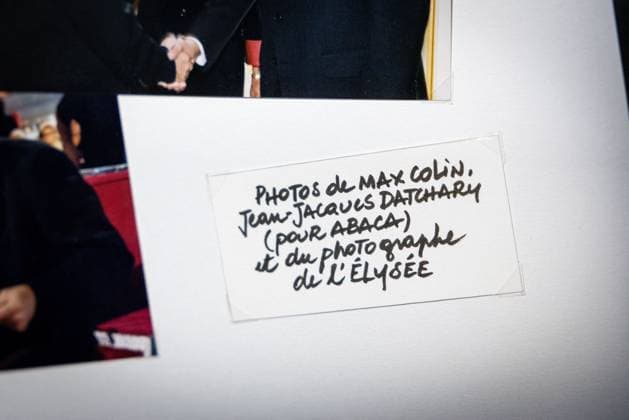 PHOTOS de MAX COLIN,
Jean-Jacques DATCHARY
(pour ABACA)
et du photographe
de l'ÉLYSÉE